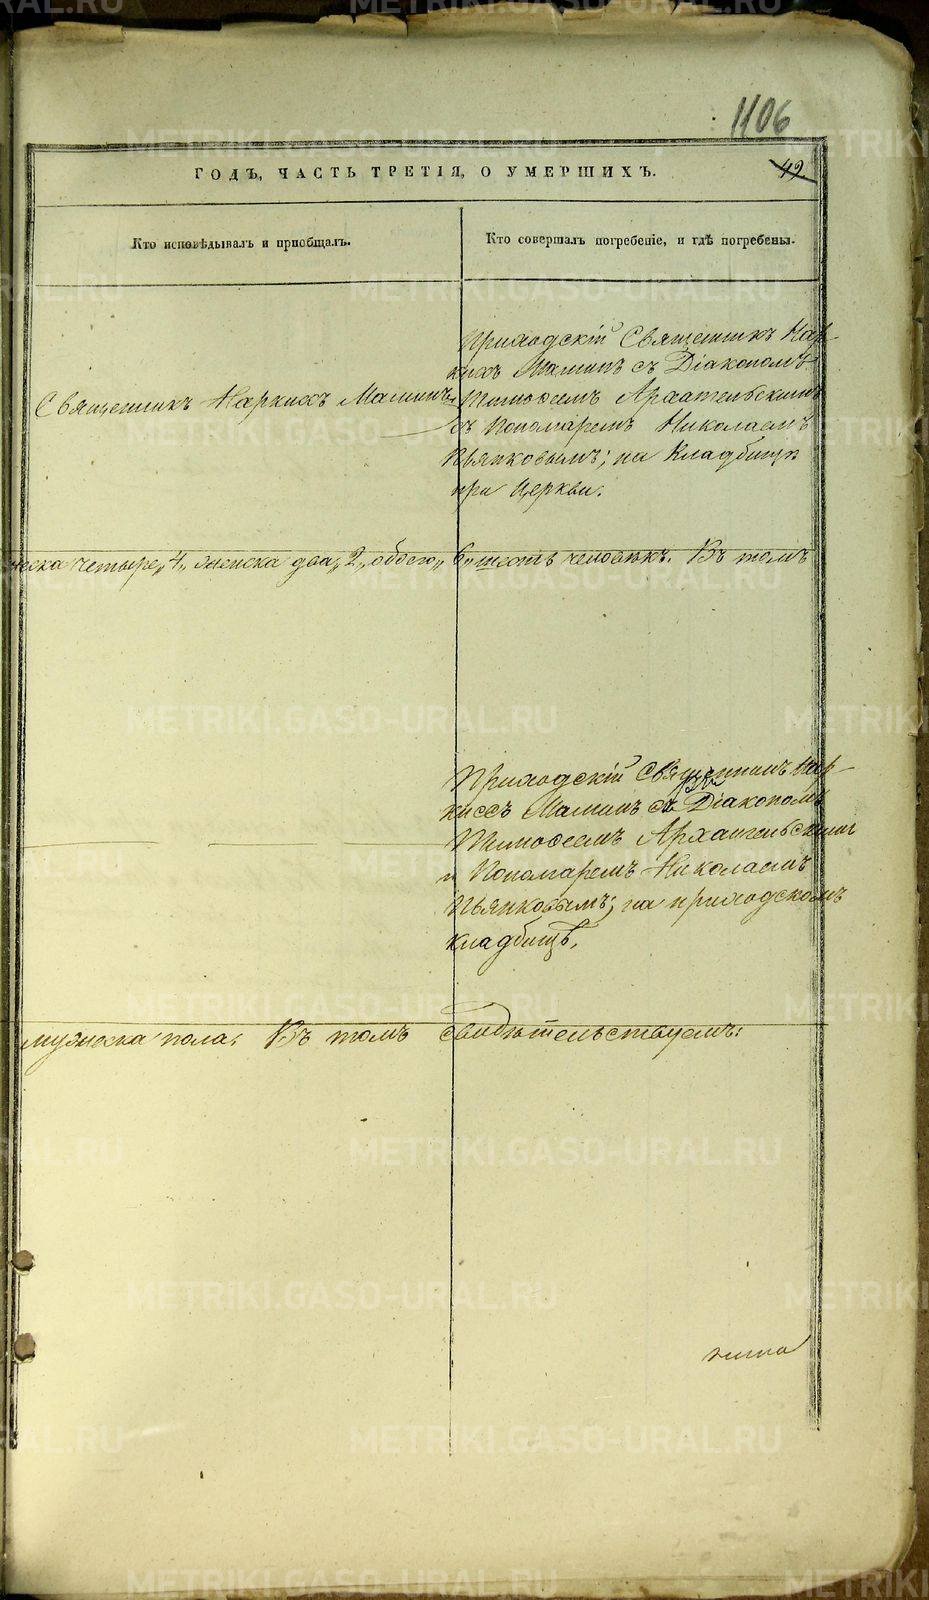 1106
ГОДЪ, ЧАСТЬ ТРЕТІЯ, О УМЕРШИХЪ.
49
Кто исповѣдывалъ и пріобщалъ.
Кто совершалъ погребеніе, и гдѣ погребены.
Священникъ Наркисъ Маминъ
Приходскій Священникъ Нар-
кисъ Маминъ съ Діакономъ
Тимофеемъ Архангельскимъ
съ Пономаремъ Николаемъ
Пьянковымъ; на Кладбищѣ
при Церкви.
жеска четыре„ 4„ женска два„ 2„ обоего„ 6„ шесть человѣкъ. Въ томъ
Приходскій Священникъ Нар-
киссъ Маминъ съ Діакономъ
Тимофеемъ Архангельским
и Пономаремъ Николаемъ
Пьянковымъ; на приходскомъ
кладбищѣ.
мужеска пола. Въ томъ свидѣтельствуемъ:
METRIKI.GASO-URAL.RU